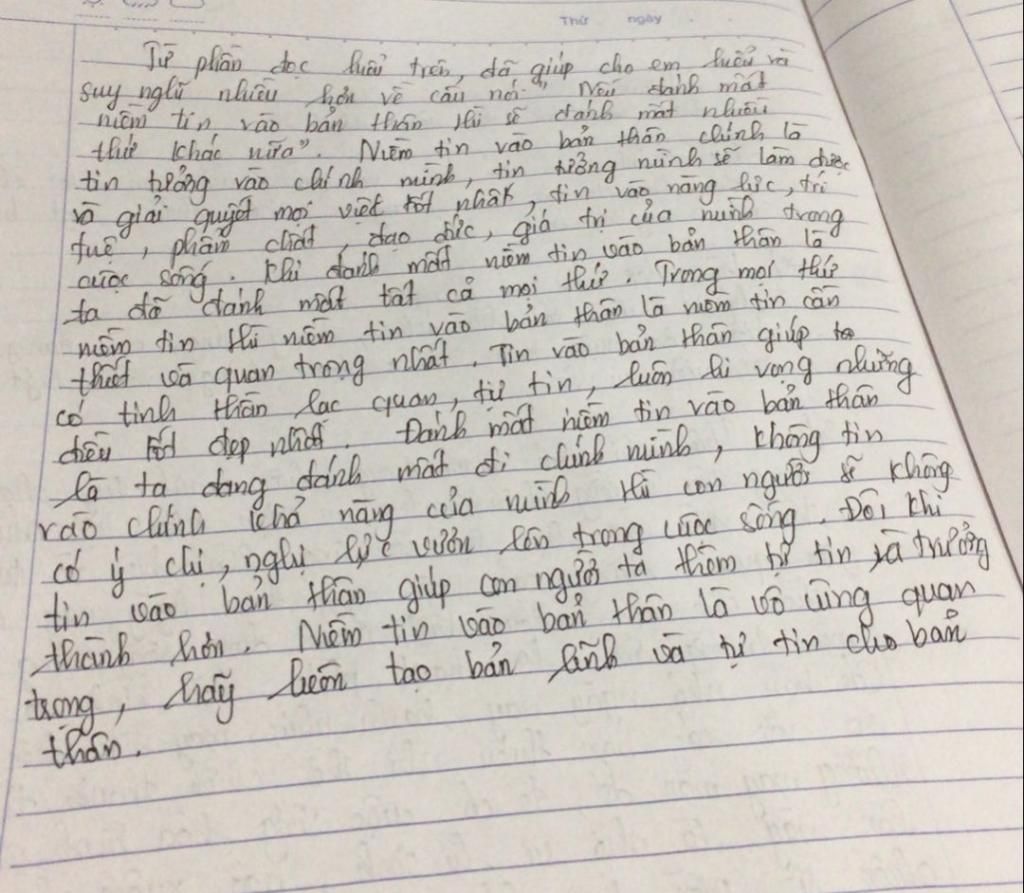 Thứ ngày
Từ phần đọc hiểu trên, đã giúp cho em hiểu và
suy nghĩ nhiều hơn về câu nói " Nếu đánh mất
niềm tin vào bản thân thì sẽ đánh mất nhiều
thứ khác nữa". Niềm tin vào bản thân chính là
tin tưởng vào chính mình, tin tưởng mình sẽ làm được
và giải quyết mọi việt tốt nhất, tin vào năng lực, trí
tuệ, phẩm chất, đạo đức, giá trị của mình trong
cuộc sống. Khi đánh mất niềm tin vào bản thân là
ta đã đánh mất tất cả mọi thứ. Trong mọi thứ
niềm tin thì niềm tin vào bản thân là niềm tin cần
thiết và quan trọng nhất. Tin vào bản thân giúp ta
có tinh thần lạc quan, tự tin, luôn hi vọng những
điều tốt đẹp nhất. Đánh mất niềm tin vào bản thân
là ta đang đánh mất đi chính mình, không tin
vào chính khả năng của mình thì con người sẽ không
có ý chị, nghị lực vươn lên trong cuộc sống. Đôi khi
tin vào bản thân giúp con người ta thêm tự tin và trưởng
thành hơn. Niềm tin vào bản thân là vô cùng quan
trọng, hãy luôn tạo bản lĩnh và tự tin cho bản
thân.